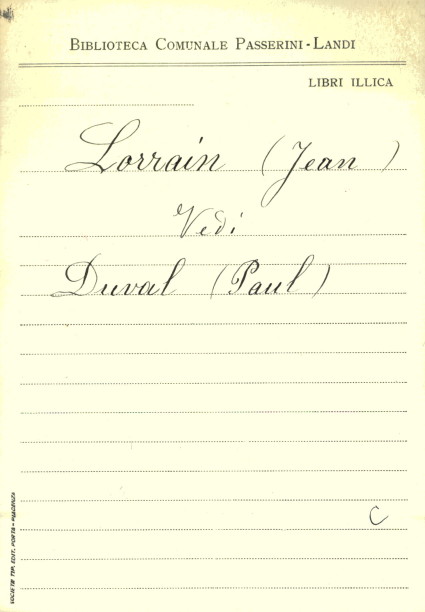 BIBLIOTECA COMUNALE PASSERINI-LANDI
LIBRI ILLICA
Lorrain (Jean)
Vedi
Duval (Paul)
C
SOCIETÀ TIP. EDIT. PORTA - PIACENZA